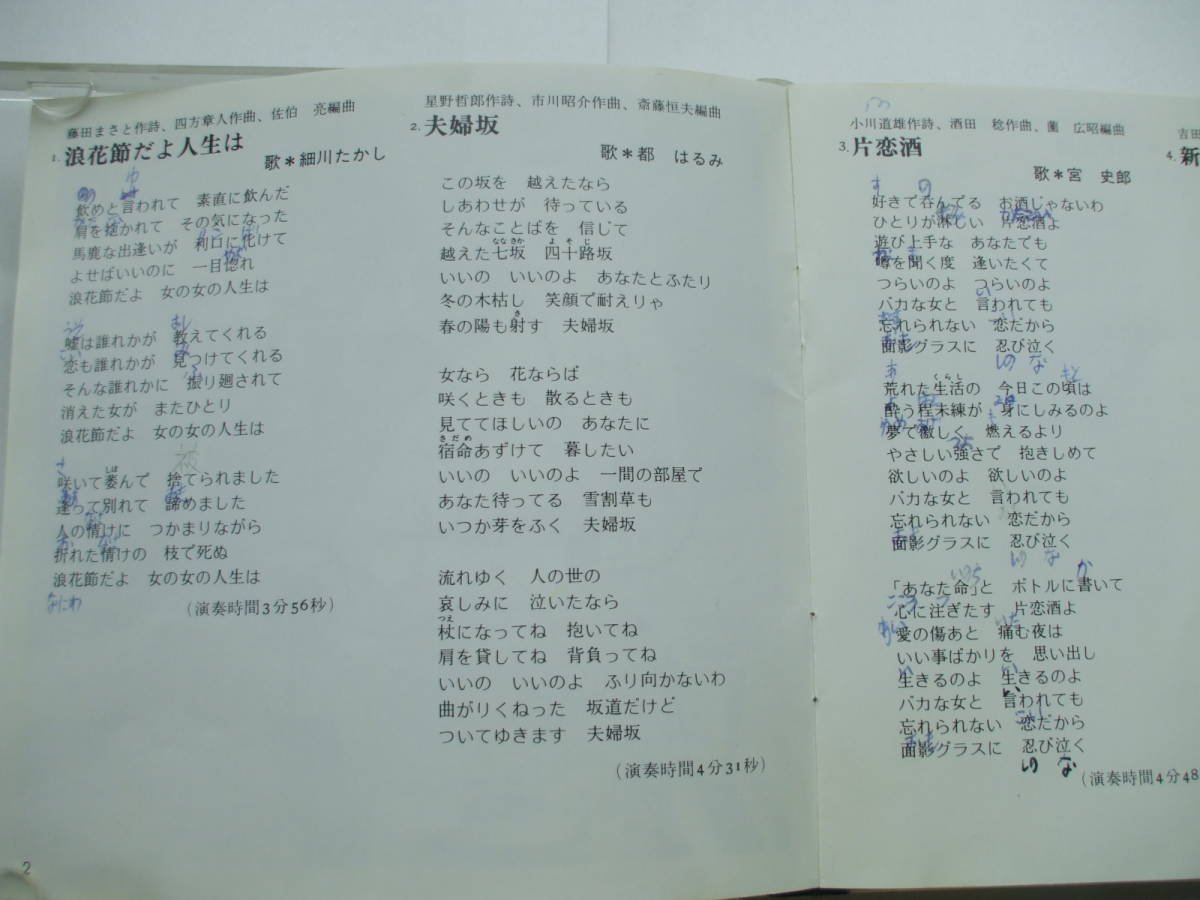 藤田まさと作詩、四方章人作曲、佐伯　亮編曲
1. 浪花節だよ人生は
歌＊細川たかし
飲めと言われて　素直に飲んだ
肩を抱かれて　その気になった
馬鹿な出逢いが　利口に化けて
よせばいいのに　一目惚れ
浪花節だよ　女の女の人生は
嘘は誰れかが　教えてくれる
恋も誰れかが　見つけてくれる
そんな誰れかに　振り廻されて
消えた女が　またひとり
浪花節だよ　女の女の人生は
咲いて萎んで　捨てられました
逢って別れて　諦めました
人の情けに　つかまりながら
折れた情けの　枝で死ぬ
浪花節だよ　女の女の人生は
なにわ
(演奏時間3分56秒)
星野哲郎作詩、市川昭介作曲、斎藤恒夫編曲
2. 夫婦坂
歌＊都　はるみ
この坂を　越えたなら
しあわせが　待っている
そんなことばを　信じて
越えた七坂　四十路坂
いいの　いいのよ　あなたとふたり
冬の木枯し　笑顔で耐えりゃ
春の陽も射す　夫婦坂
女なら　花ならば
咲くときも　散るときも
見ててほしいの　あなたに
宿命あずけて　暮したい
いいの　いいのよ　一間の部屋で
あなた待ってる　雪割草も
いつか芽をふく　夫婦坂
流れゆく　人の世の
哀しみに　泣いたなら
杖になってね　抱いてね
肩を貸してね　背負ってね
いいの　いいのよ　ふり向かないわ
曲がりくねった　坂道だけど
ついてゆきます　夫婦坂
(演奏時間4分31秒)
小川道雄作詩、酒田　稔作曲、薗　広昭編曲
3. 片恋酒
歌＊宮　史郎
好きで呑んでる　お酒じゃないわ
ひとりが淋しい　片恋酒よ
遊び上手な　あなたでも
噂を聞く度　逢いたくて
つらいのよ　つらいのよ
バカな女と　言われても
忘れられない　恋だから
面影グラスに　忍び泣く
荒れた生活の　今日この頃は
酔う程未練が　身にしみるのよ
夢で激しく　燃えるより
やさしい強さで　抱きしめて
欲しいのよ　欲しいのよ
バカな女と　言われても
忘れられない　恋だから
面影グラスに　忍び泣く
「あなた命」と　ボトルに書いて
心に注ぎたす　片恋酒よ
愛の傷あと　痛む夜は
いい事ばかりを　思い出し
生きるのよ　生きるのよ
バカな女と　言われても
忘れられない　恋だから
面影グラスに　忍び泣く
(演奏時間4分48
吉田
4. 新
2